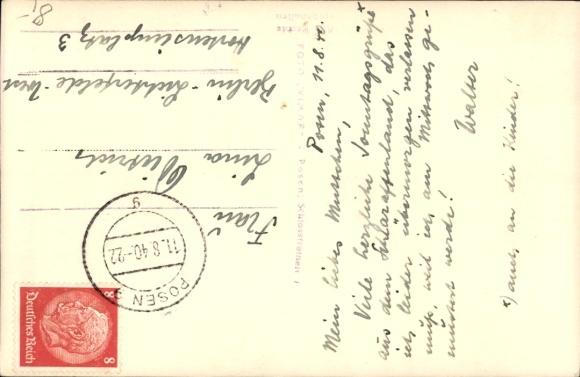 Posen, 11.8.40.
Mein liebes Muttchen,
Viele herzliche Sonntagsgrüße x)
aus dem Schlaraffenland, das
ich leider übermorgen verlassen
muß, weil ich am Mittwoch ge-
mustert werde!
Walter
x) auch an die Kinder!
Frau
Lina Dietrich,
Berlin-Lichterfelde-West
Hortensienplatz 3
8,-
POSEN
11.8.40.-22
g
Deutsches Reich
8
8
FOTO
Posen, Schlossfreiheit